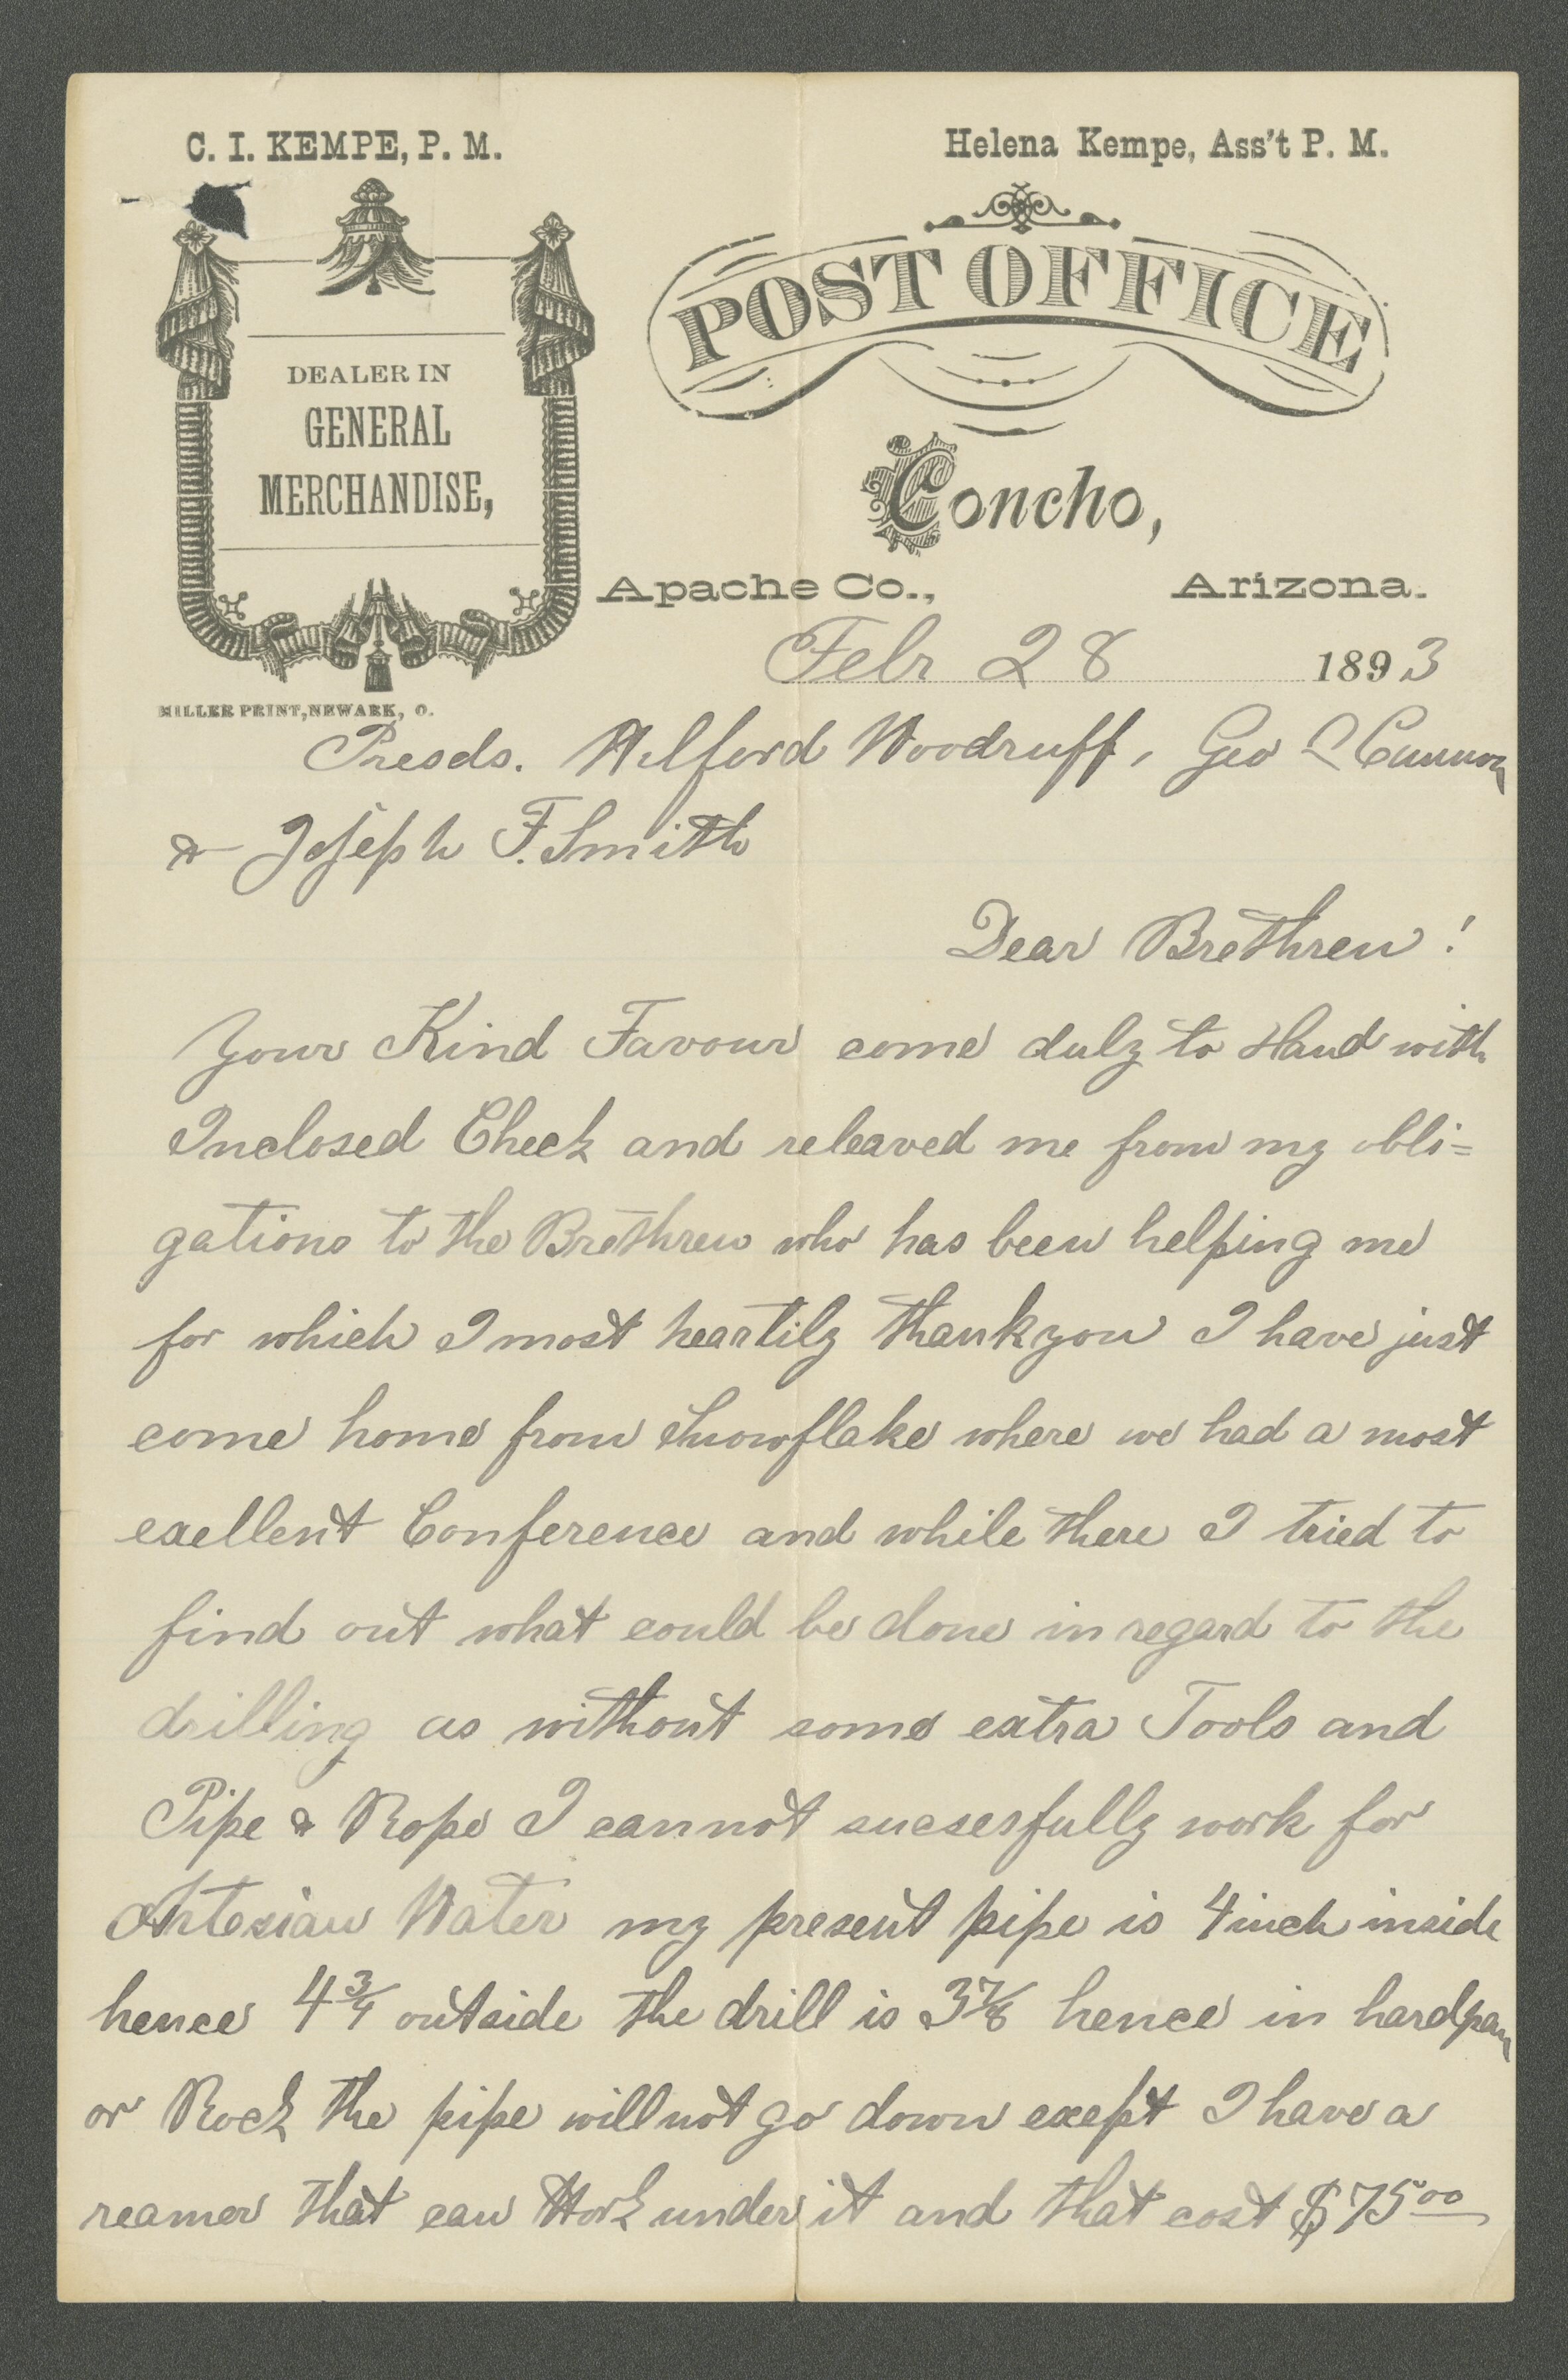 C. I. KEMPE, P. M.
Helena Kempe, Ass't P. M.
DEALER IN
GENERAL
MERCHANDISE,
MILLER PRINT, NEWARK, O.
POST OFFICE
Concho,
Apache Co., Arizona.
Febr 28 1893
Presds. Wilford Woodruff, Geo Q Cannon
& Joseph F. Smith
Dear Brethren!
Your Kind Favour come duly to Hand with
Inclosed Check and releaved me from my obli=
gations to the Brethren who has been helping me
for which I most heartily thank you I have just
come home from Snowflake where we had a most
exellent Conference and while there I tried to
find out what could be done in regard to the
drilling as without some extra Tools and
Pipe & Rope I cannot sucsesfully work for
Artesian Water my present pipe is 4 inch inside
hence 4 3/4 outside the drill is 3 7/8 hence in hardpan
or Rock the pipe will not go down exept I have a
reamer that can Work under it and that cost $75 00